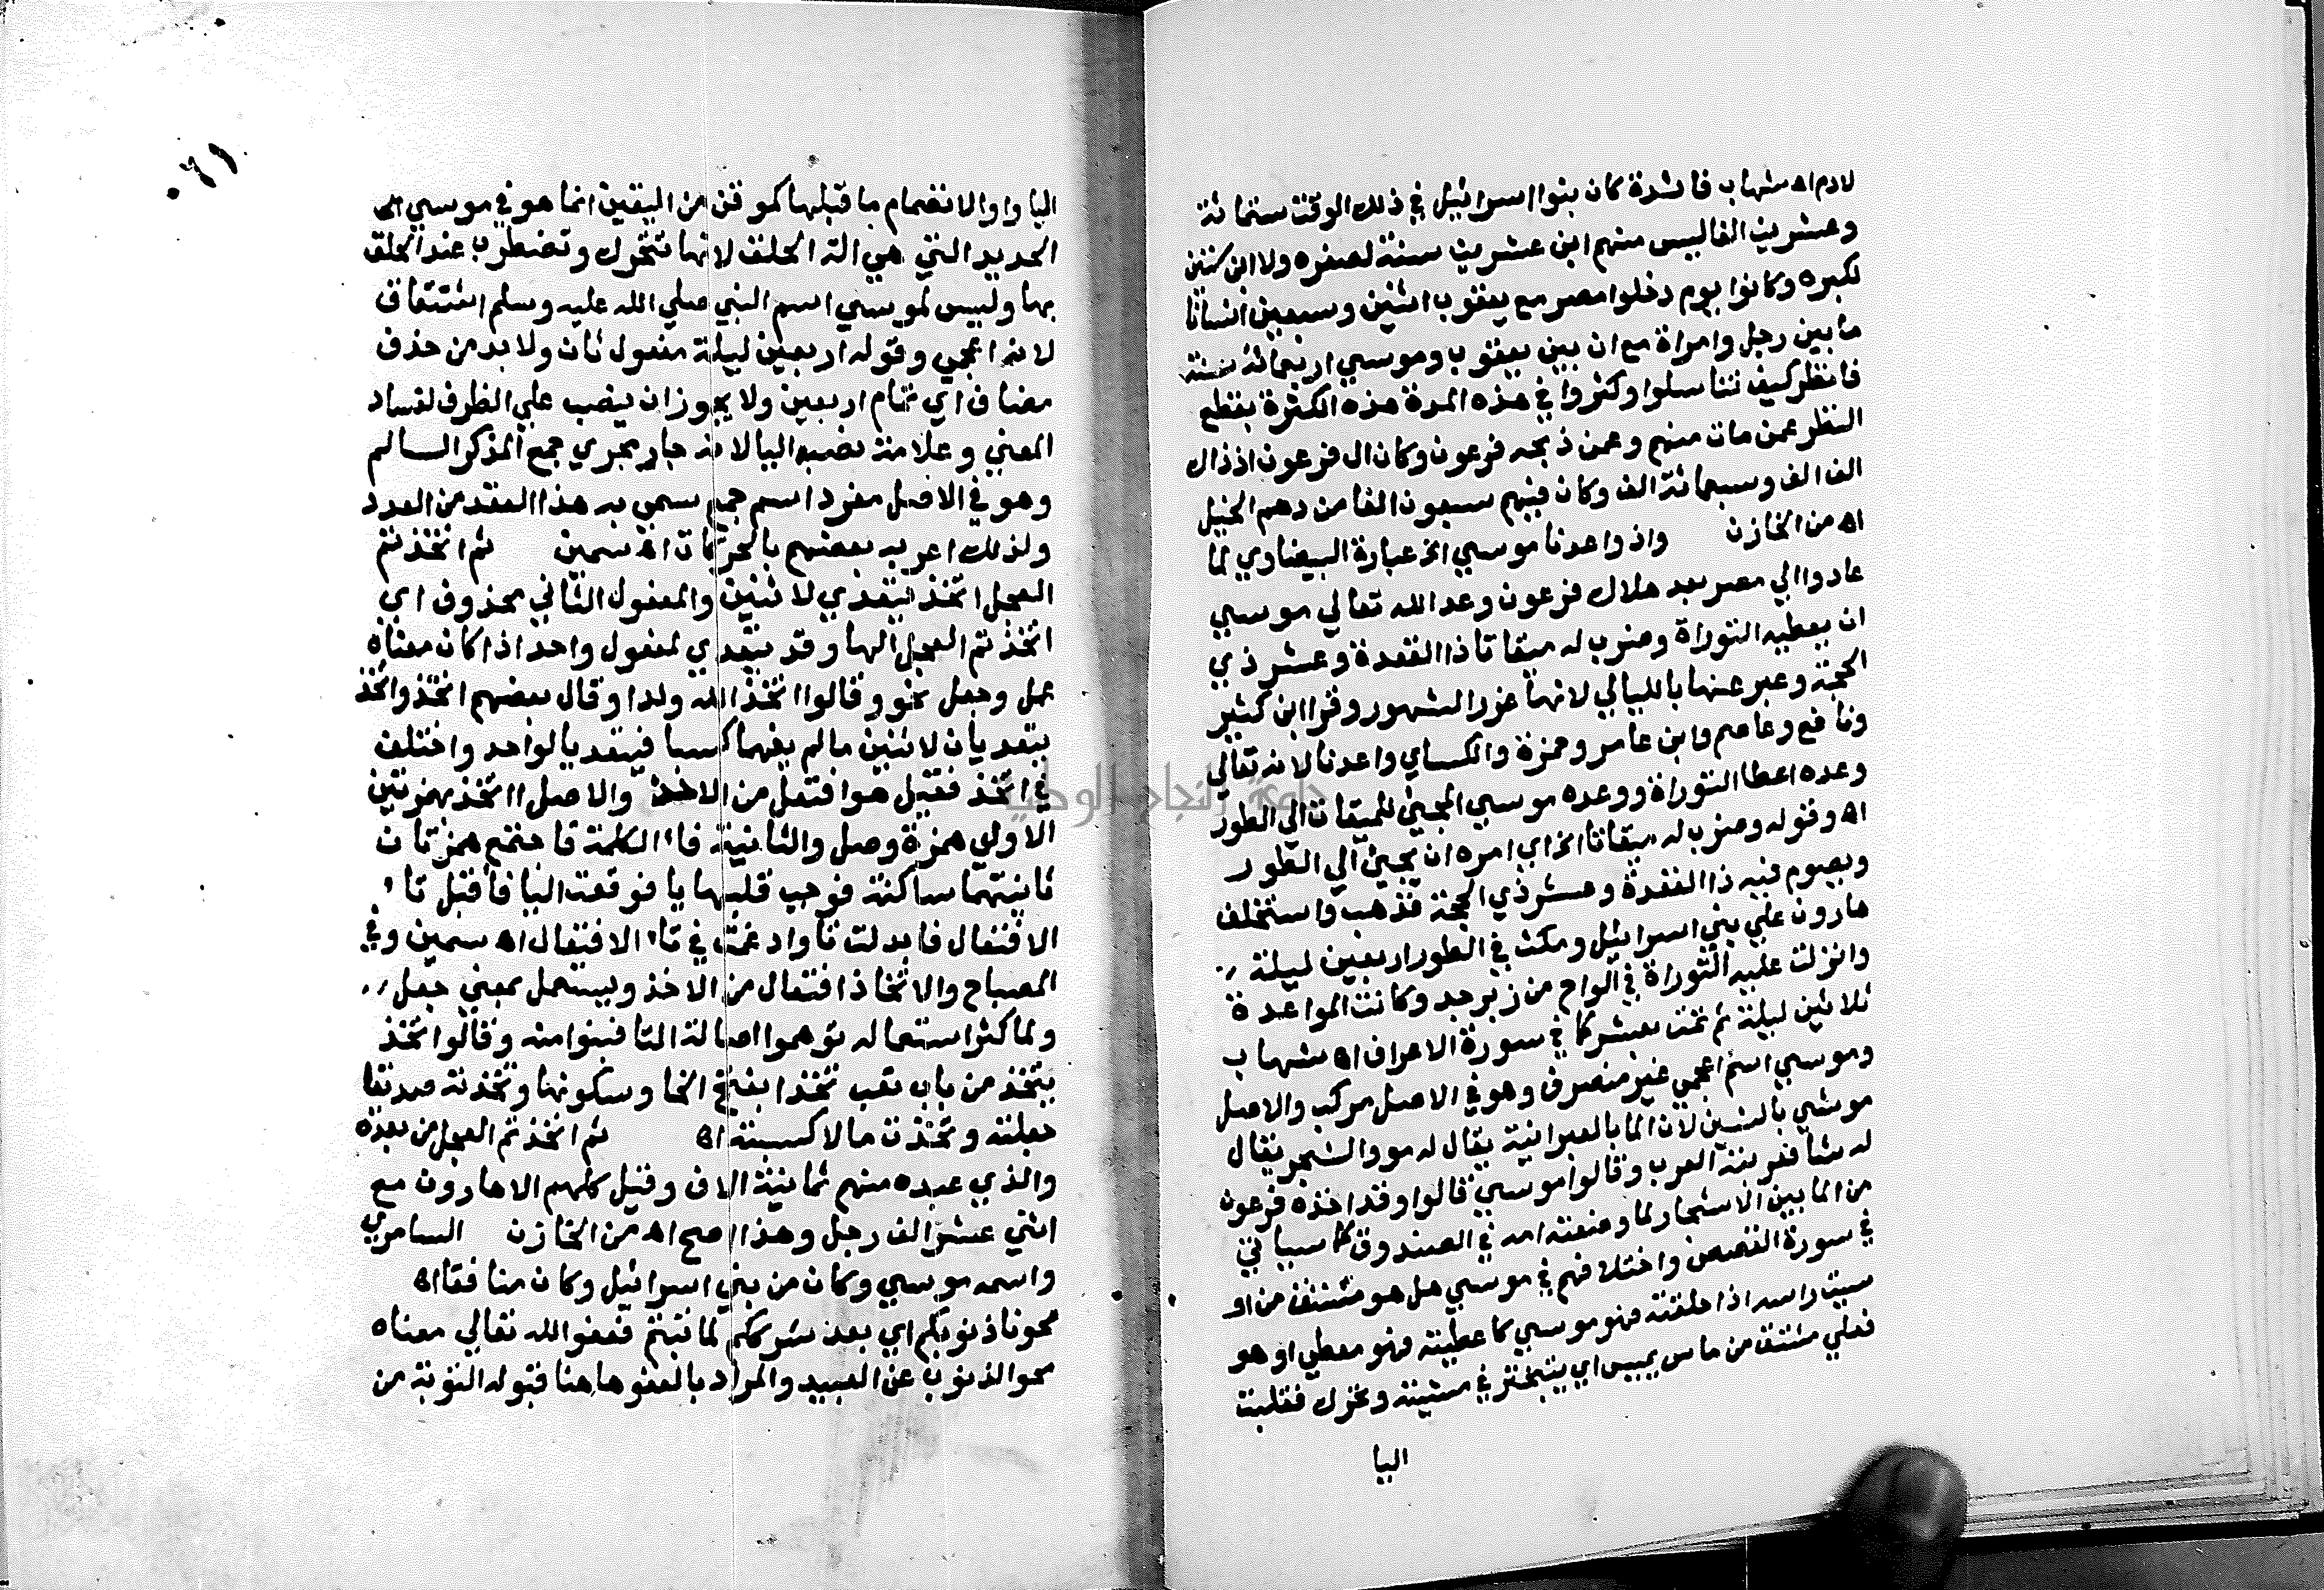 لادم اه شهاب فائدة كان بنوا اسرائيل في ذلك الوقت ستمائة
وعشرين الفا ليس منهم ابن عشرين سنة لصغره ولا ابن ستين
لكبره وكانوا يوم دخلوا مصر مع يعقوب اثنين وسبعين انسانا
ما بين رجل وامراة مع ان بين يعقوب وموسي اربعمائة سنة
فانظر كيف تناسلوا وكثروا في هذه المدة هذه الكثرة بقطع
النظر عمن مات منهم وعمن ذبحه فرعون وكان ال فرعون اذ ذاك
الف الف وسبعمائة الف وكان فيهم سبعون الفا من دهم الخيل
اه من الخازن واذ واعدنا موسي الخ عبارة البيضاوي لما
عادوا الي مصر بعد هلاك فرعون وعد الله تعالي موسي
ان يعطيه التوراة وضرب له ميقاتا ذا القعدة وعشر ذي
الحجة وعبر عنها بالليالي لانها غرر الشهور وقرا ابن كثير
ونافع وعاصم وابن عامر وحمزة والكساي واعدنا لانه تعالي
وعده اعطا التوراة ووعده موسي المجيئ للميقات الي الطور
اه وقوله وضرب له ميقاتا الخ اي امره ان يجيئ الي الطور
ويصوم فيه ذا القعدة وعشر ذي الحجة فذهب واستخلف
هارون علي بني اسرائيل ومكث في الطور اربعين ليلة
وانزلت عليه التوراة في الواح من زبرجد وكانت المواعدة
ثلاثين ليلة ثم تمت بعشر كما في سورة الاعراف اه شهاب
وموسي اسم اعجمي غير منصرف وهو في الاصل مركب والاصل
موشي بالشين لان الما بالعبرانية يقال له مو والشجر يقال
له شا فعربته العرب وقالوا موسي قالوا وقد اخذه فرعون
من الما بين الاشجار لما وضعته امه في الصندوق كما سياتي
في سورة القصص واختلافهم في موسي هل هو مشتق من او
سيت راسه اذا حلقته فهو موسي كاعطيته فهو معطي او هو
فعلي مشتق من ماس يميس اي يتبختر في مشيته وتحرك فقلبت
اليا
٠٦١
اليا واوا لانضمام ما قبلها كموقن من اليقين انما هو في موسي الة
الحديد التي هي الة الحلق لانها تتحرك وتضطرب عند الحلق
بها وليس لموسي اسم النبي صلي الله عليه وسلم اشتقاق
لانه اعجمي وقوله اربعين ليلة مفعول ثان ولا بد من حذف
مضاف اي تمام اربعين ولا يجوز ان ينصب علي الظرف لفساد
المعني وعلامة نصبه اليا لانه جار مجري جمع المذكر السالم
وهو في الاصل مفرد اسم جمع سمي به هذا العقد من العدد
ولذلك اعربه بعضهم بالحركات اه سمين ثم اتخذتم
العجل اتخذ يتعدي لاثنين والمفعول الثاني محذوف اي
اتخذتم العجل الها وقد يتعدي لمفعول واحد اذا كان معناه
عمل وجعل نحو وقالوا اتخذ الله ولدا وقال بعضهم اتخذ واتخذ
يتعديان لاثنين ما لم يفهما كسبا فيتعديا لواحد واختلف
في اتخذ فقيل هو افتعل من الاخذ والاصل ااتخذ بهمزتين
الاولي همزة وصل والثانية فاء الكلمة فاجتمع همزتان
ثانيتهما ساكنة فوجب قلبها يا فوقعت اليا فا قبل تاء
الافتعال فابدلت تا وادغمت في تاء الافتعال اه سمين وفي
المصباح والاتخاذ افتعال من الاخذ ويستعمل بمعني جعل
ولما كثر استعماله توهموا اصالة التا فبنوا منه وقالوا تخذ
يتخذ من باب تعب تخذا بفتح الخا وسكونها وتخذته صديقا
جعلته وتخذت مالا كسبته اه ثم اتخذتم العجل من بعده
والذي عبده منهم ثمانية الاف وقيل كلهم الا هارون مع
اثني عشر الف رجل وهذا اصح اه من الخازن السامري
واسمه موسي وكان من بني اسرائيل وكان منافقا اه
محونا ذنوبكم اي بعد شرككم لما تبتم فعفو الله تعالي معناه
محو الذنوب عن العبيد والمراد بالعفو هاهنا قبوله التوبة من
جامعة النجاح الوطنية